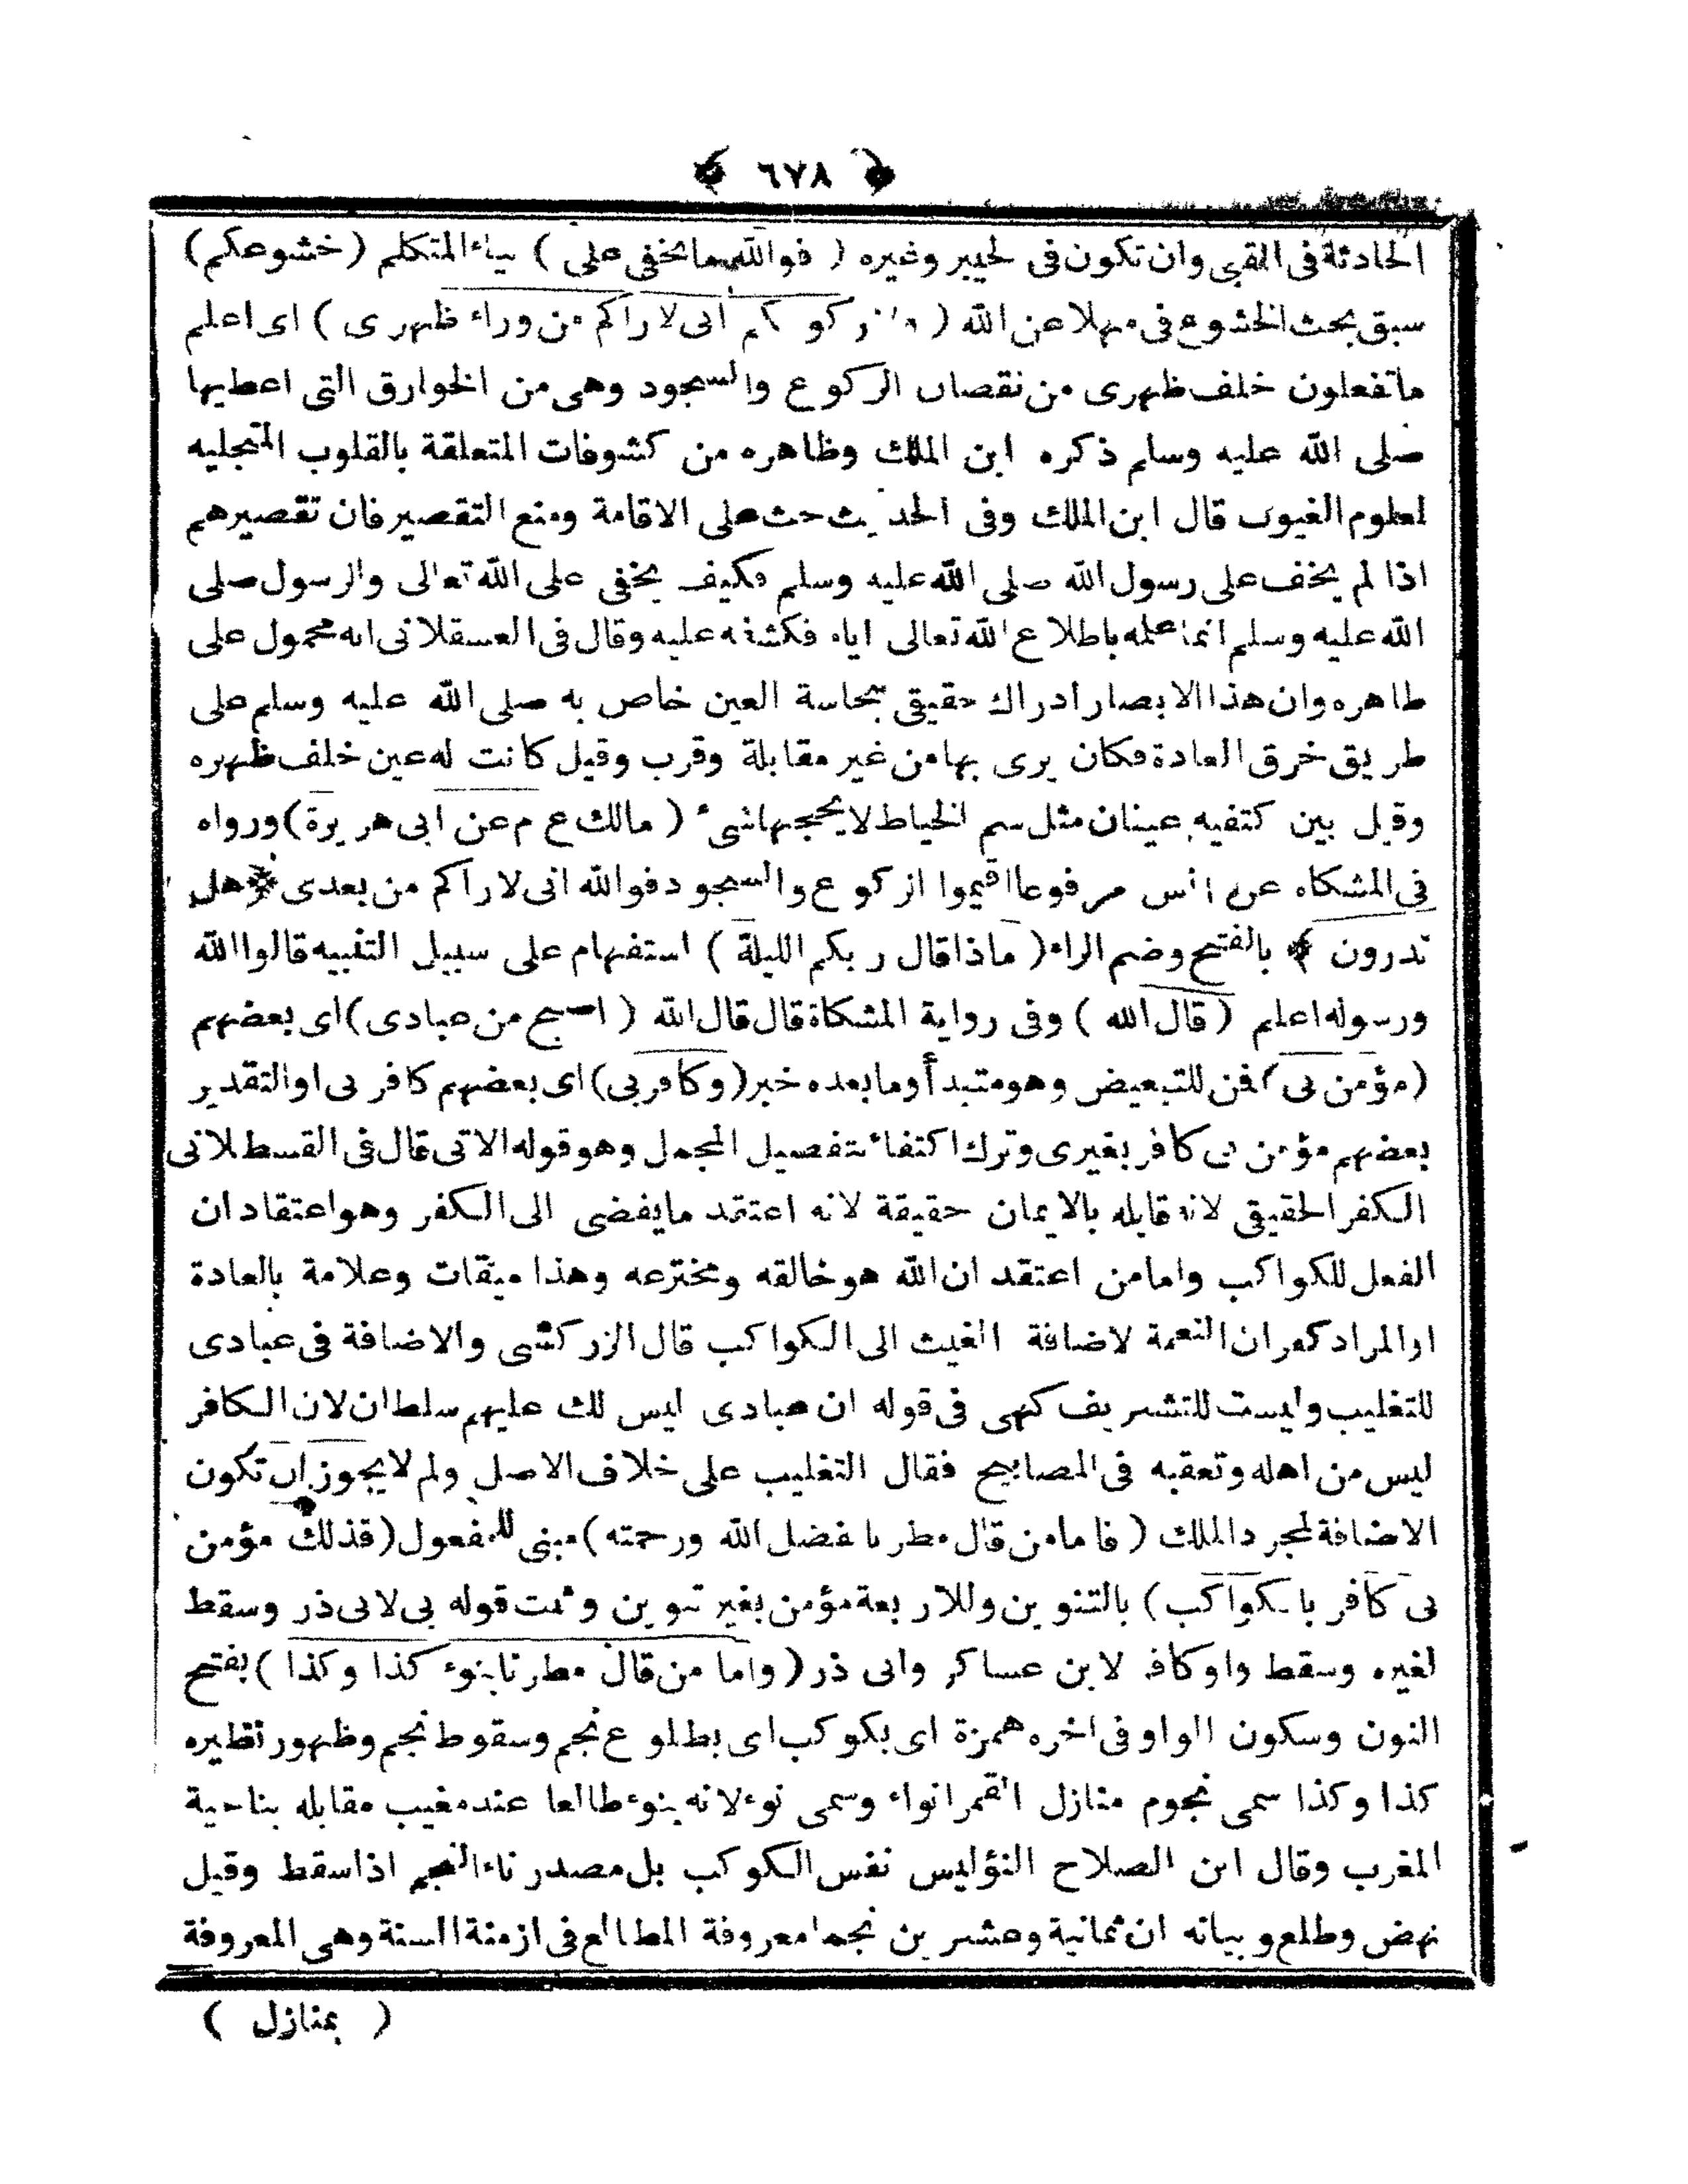 ﴿ ٦٧٨ ﴾
الحادثة فى القبى وان تكون فى لحيبر وغيره ( فوالله ما يخفى على ) بياء المتكلم (خشوعكم)
سبق بحث الخشوع فى مهلا عن الله ( ركوعكم انى لاراكم من وراء ظهرى ) اى اعلم
ما تفعلون خلف ظهرى من نقصان الركوع والسجود وهى من الخوارق التى اعطيها
صلى الله عليه وسلم ذكره ابن الملك وظاهره من كشوفات المتعلقة بالقلوب المتجليه
لعلوم الغيوب قال ابن الملك وفى الحديث حث على الاقامة ومنع التقصير فان تقصيرهم
اذا لم يخف على رسول الله صلى الله عليه وسلم فكيف يخفى على الله تعالى والرسول صلى
الله عليه وسلم انما علمه باطلاع الله تعالى اياه فكشفه عليه وقال فى العسقلانى انه محمول على
ظاهره وان هذا الابصار ادراك حقيقى بحاسة العين خاص به صلى الله عليه وسلم على
طريق خرق العادة فكان يرى بها من غير مقابلة وقرب وقيل كانت له عين خلف ظهره
وقيل بين كتفيه عينان مثل سم الخياط لا يحجبها شىء ( مالك ع م عن ابى هريرة) ورواه
فى المشكاه عن انس مرفوعا اقيموا الركوع والسجود فوالله انى لاراكم من بعدى ﴿ هل
تدرون ﴾ بالفتح وضم الراء ( ماذا قال ربكم الليلة ) استفهام على سبيل التنبيه قالوا الله
ورسوله اعلم ( قال الله ) وفى رواية المشكاة قال قال الله ( اصبح من عبادى ) اى بعضهم
(مؤمن بى ) فمن للتبعيض وهو متبدأ وما بعده خبر (وكافر بى) اى بعضهم كافر بى او التقدير
بعضهم مؤمن بى كافر بغيرى وترك اكتفاء بتفصيل المجمل وهو قوله الاتى قال فى القسطلانى
الكفر الحقيقى لانه قابله بالايمان حقيقة لانه اعتمد ما يفضى الى الكفر وهو اعتقاد ان
الفعل للكواكب واما من اعتقد ان الله هو خالقه ومخترعه وهذا ميقات وعلامة بالعادة
او المراد كفران النعمة لاضافة الغيث الى الكواكب قال الزركشى والاضافة فى عبادى
للتغليب وليست للتشريف كهى فى قوله ان عبادى ليس لك عليهم سلطان لان الكافر
ليس من اهله وتعقبه فى المصابيح فقال التغليب على خلاف الاصل ولم لا يجوز ان تكون
الاضافة لمجرد الملك ( فاما من قال مطرنا بفضل الله ورحمته ) مبنى للمفعول ( فذلك مؤمن
بى كافر بالكواكب ) بالتنوين وللاربعة مؤمن بغير تنوين وثمت قوله بى لابى ذر وسقط
لغيره وسقط واو كافر لابن عساكر وابى ذر ( واما من قال مطرنا بنوء كذا وكذا ) بفتح
النون وسكون الواو فى اخره همزة اى بكوكب اى بطلوع نجم وسقوط نجم وظهور نظيره
كذا وكذا سمى نجوم منازل القمر انواء وسمى نوء لانه ينوء طالعا عند مغيب مقابله بناحية
المغرب وقال ابن الصلاح النؤ ليس نفس الكوكب بل مصدر ناء النجم اذا سقط وقيل
نهض وطلع وبيانه ان ثمانية وعشرين نجما معروفة المطالع فى ازمنة السنة وهى المعروفة
( بمنازل )